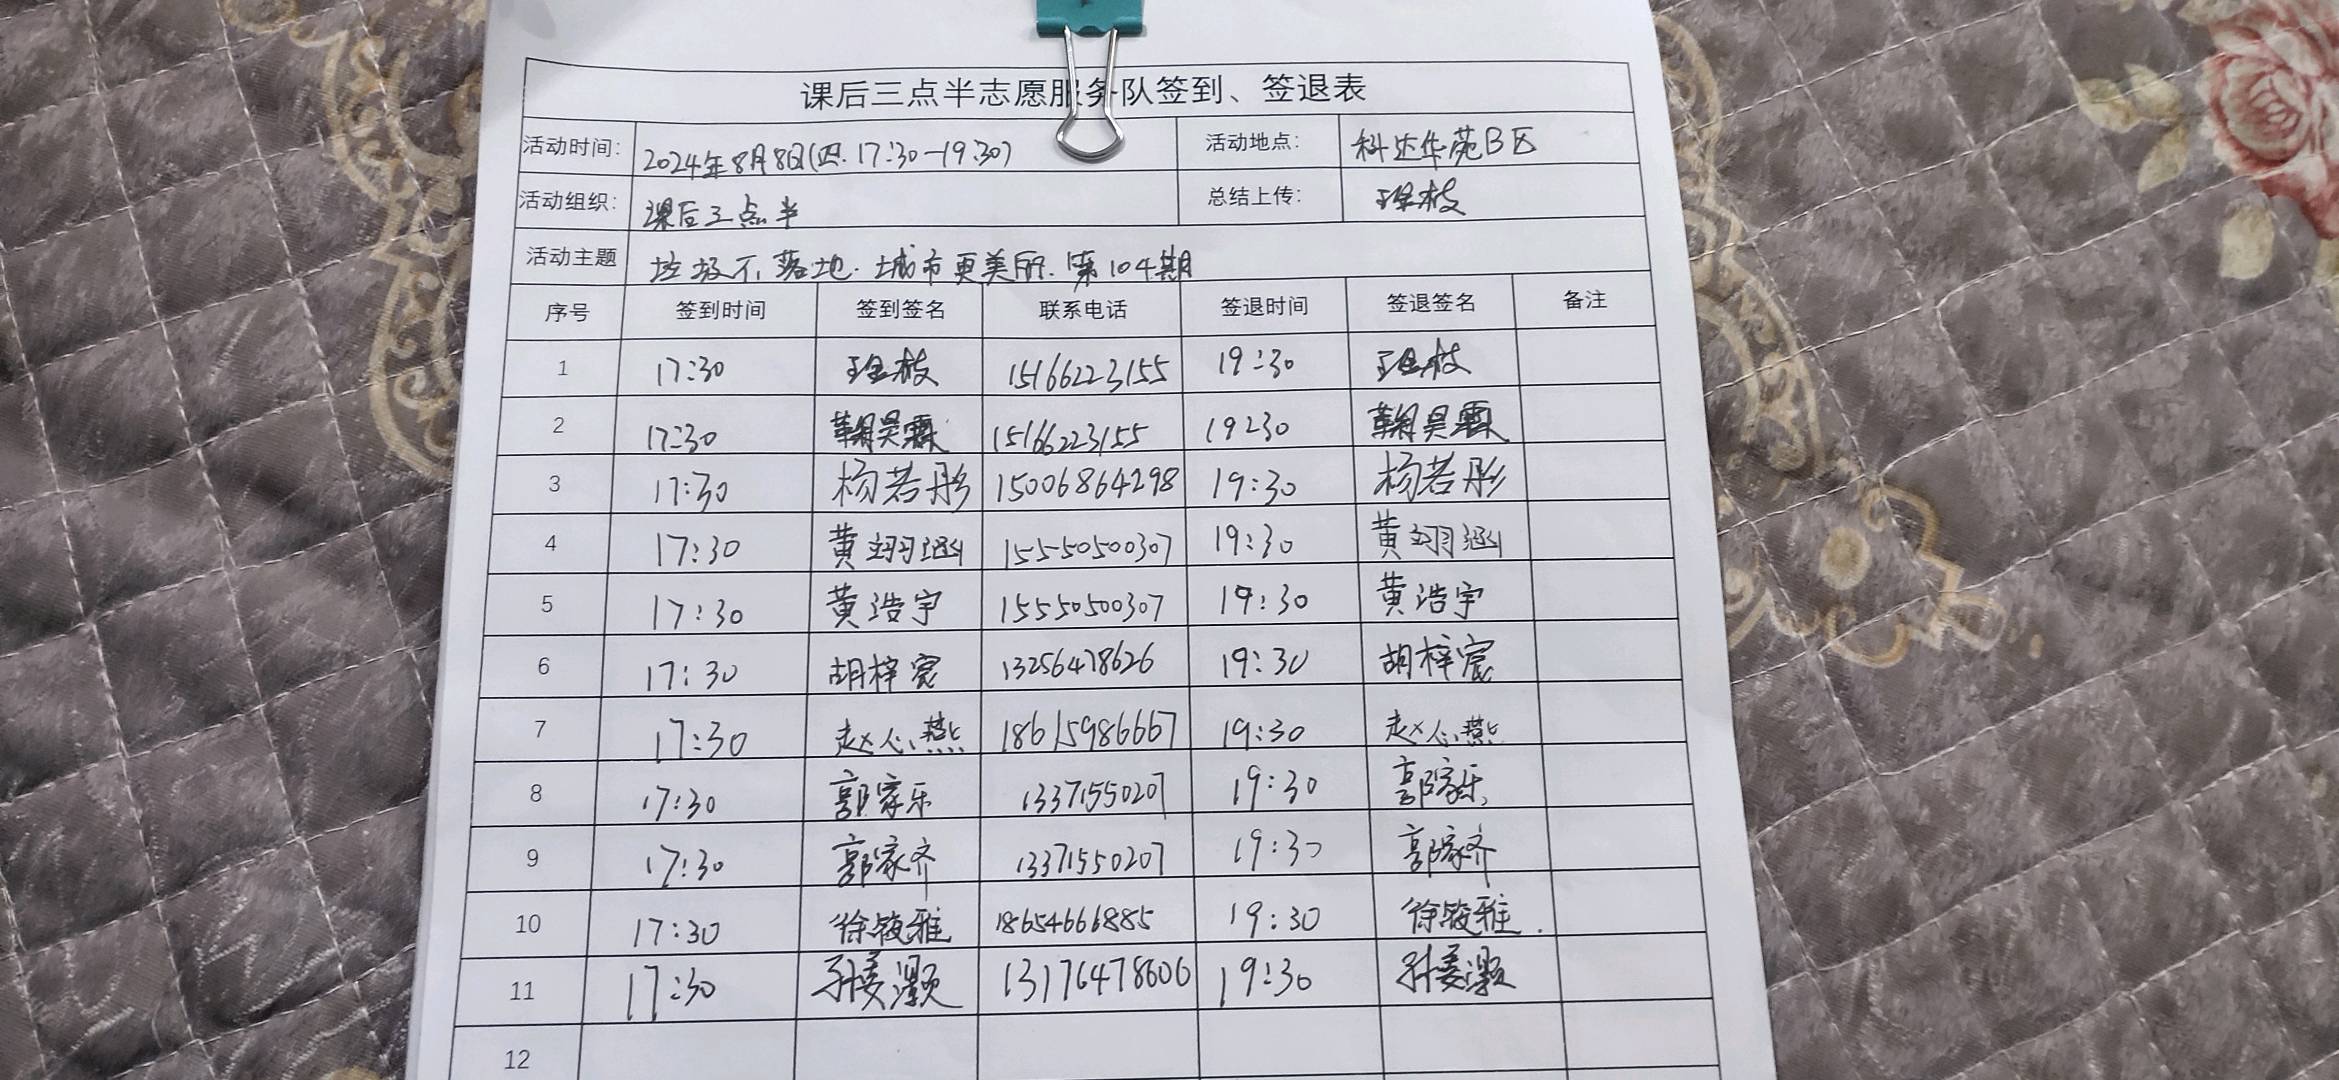 课后三点半志愿服务队签到、签退表
活动时间: 2024年8月8日(四. 17:30-19:30) 活动地点: 科达华苑B区
活动组织: 课后三点半 总结上传: 王全枝
活动主题 垃圾不落地.城市更美丽.第104期
序号 签到时间 签到签名 联系电话 签退时间 签退签名 备注
1 17:30 王全枝 15166223155 19:30 王全枝
2 17:30 鞠昊霖 15166223155 19:30 鞠昊霖
3 17:30 杨若彤 15006864298 19:30 杨若彤
4 17:30 黄翊涵 15550500307 19:30 黄翊涵
5 17:30 黄浩宇 15550500307 19:30 黄浩宇
6 17:30 胡梓宸 13256478626 19:30 胡梓宸
7 17:30 赵心燕 18615986667 19:30 赵心燕
8 17:30 郭家乐 13371550207 19:30 郭家乐
9 17:30 郭家齐 13371550207 19:30 郭家齐
10 17:30 徐筱雅 18654666885 19:30 徐筱雅.
11 17:30 孙姜灏 13176478606 19:30 孙姜灏
12